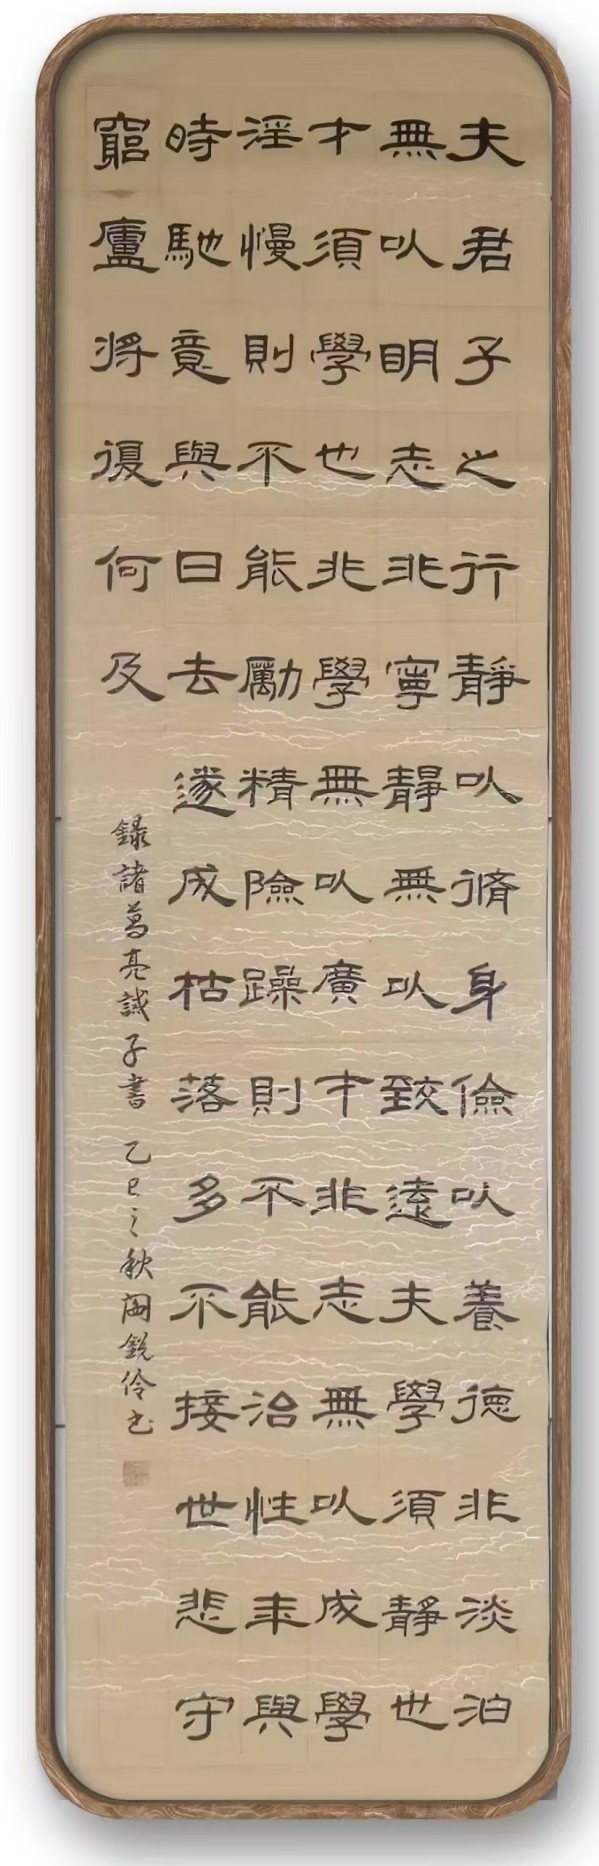 夫君子之行靜以脩身儉以養德非淡泊
無以明志非寧靜無以致遠夫學須靜也
才須學也非學無以廣才非志無以成學
淫慢則不能勵精險躁則不能治性年與
時馳意與日去遂成枯落多不接世悲守
窮廬將復何及
錄諸葛亮誡子書 乙巳之秋 銳伶书